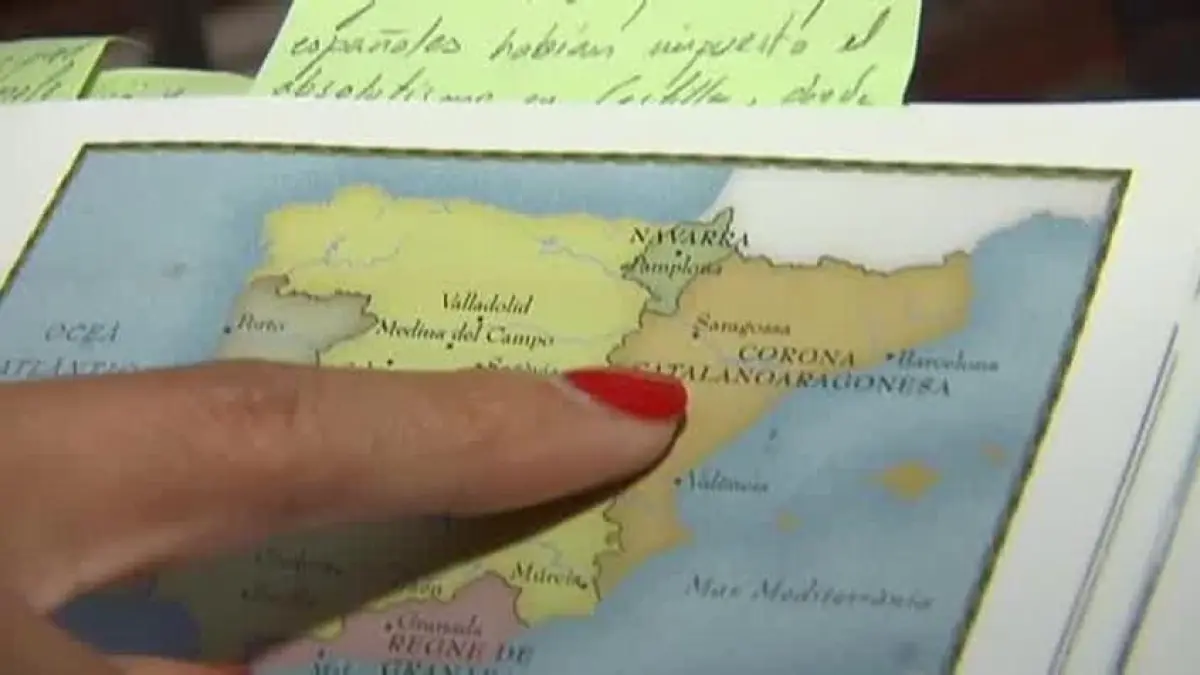 españoles habían impuesto el
absolutismo en Castilla, desde
NAVARRA
Pamplona
Valladolid
Porto
Medina del Campo
Saragossa
OCEÀ
ATLÀNTIC
CORONA
CATALANOARAGONESA
Barcelona
València
Múrcia
Mar Mediterrània
Granada
REGNE DE
GRANADA